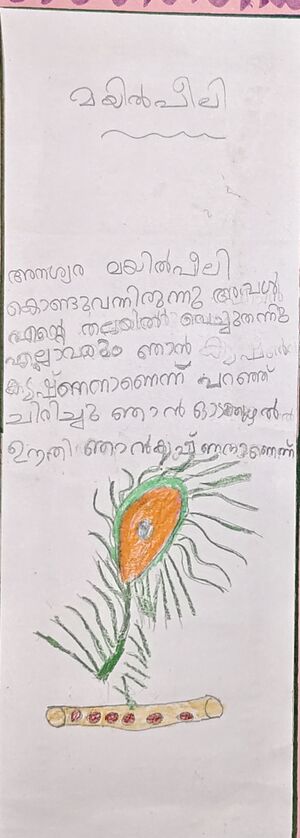 മയിൽപീലി
അനശ്വര മയിൽപീലി
കൊണ്ടുവന്നിരുന്നു അപ്പൾ
എന്റെ തലയിൽ വെച്ചുതന്നു
എല്ലാവരും ഞാൻ
കൃഷ്ണനാണെന്ന് പറഞ്ഞ്
ചിരിച്ചു ഞാൻ ഓടക്കുഴൽ
ഊതി ഞാൻകൃഷ്ണനാണെന്ന്